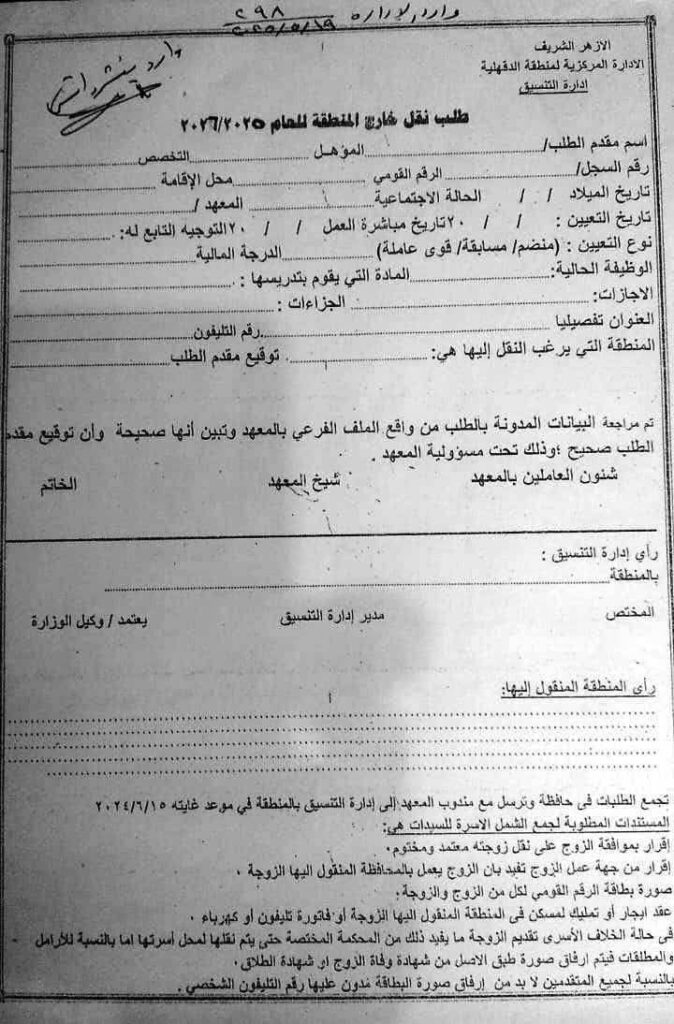 وارد الإدارة ٢٩٨
٢٠٢٥/٥/١٩
وارد
الازهر الشريف
الادارة المركزية لمنطقة الدقهلية
إدارة التنسيق
طلب نقل خارج المنطقة للعام ٢٠٢٦/٢٠٢٥
اسم مقدم الطلب/ المؤهل التخصص
رقم السجل/ الرقم القومي محل الإقامة
تاريخ الميلاد / / الحالة الاجتماعية المعهد /
تاريخ التعيين : / / ٢٠ تاريخ مباشرة العمل / / ٢٠ التوجيه التابع له:
نوع التعيين : (منضم/ مسابقة/ قوى عاملة) الدرجة المالية
الوظيفة الحالية: المادة التي يقوم بتدريسها :
الاجازات: الجزاءات :
العنوان تفصيليا رقم التليفون
المنطقة التي يرغب النقل إليها هي: توقيع مقدم الطلب
تم مراجعة البيانات المدونة بالطلب من واقع الملف الفرعي بالمعهد وتبين أنها صحيحة وأن توقيع مقدم
الطلب صحيح ؛وذلك تحت مسؤولية المعهد .
شئون العاملين بالمعهد شيخ المعهد الخاتم
رأي إدارة التنسيق :
بالمنطقة
المختص مدير إدارة التنسيق يعتمد / وكيل الوزارة
رأى المنطقة المنقول إليها:
تجمع الطلبات فى حافظة وترسل مع مندوب المعهد إلى إدارة التنسيق بالمنطقة في موعد غايته ٢٠٢٤/٦/١٥
المستندات المطلوبة لجمع الشمل الاسرة للسيدات هي:
إقرار بموافقة الزوج على نقل زوجته معتمد ومختوم.
إقرار من جهة عمل الزوج تفيد بان الزوج يعمل بالمحافظة المنقول اليها الزوجة .
صورة بطاقة الرقم القومي لكل من الزوج والزوجة.
عقد ايجار أو تمليك لمسكن فى المنطقة المنقول اليها الزوجة أو فاتورة تليفون أو كهرباء .
فى حالة الخلاف الأسرى تقديم الزوجة ما يفيد ذلك من المحكمة المختصة حتى يتم نقلها لمحل أسرتها اما بالنسبة للأرامل -
والمطلقات فيتم ارفاق صورة طبق الاصل من شهادة وفاة الزوج او شهادة الطلاق.
بالنسبة لجميع المتقدمين لا بد من إرفاق صورة البطاقة مدون عليها رقم التليفون الشخصي .